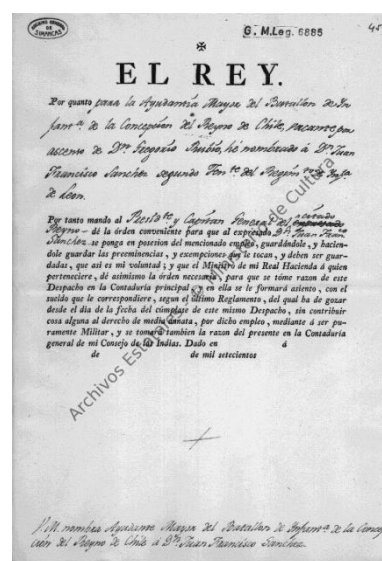 ARCHIVO GENERAL DE SIMANCAS
G. M. Leg. 6885
45
EL REY.
Por quanto para la Ayudantía Mayor del Batallon de In-
fant.ª de la Concepcion del Reyno de Chile, vacante por
ascenso de Dn. Gregorio Rubio, he nombrado á Dn. Juan
Francisco Sanchez segundo Ten.te del Regim.to de Inf.ª
de Leon.
Por tanto mando al Presid.te y Capitan General del citado
Reyno - dé la órden conveniente para que al expresado Dn. Juan Fran.co
Sanchez se ponga en posesion del mencionado empleo, guardándole, y hacien-
dole guardar las preeminencias, y exempciones que le tocan, y deben ser guar-
dadas, que asi es mi voluntad; y que el Ministro de mi Real Hacienda á quien
perteneciere, dé asimismo la órden necesaria para que se tóme razon de este
Despacho en la Contaduría principal, y en ella se le formará asiento, con el
sueldo que le correspondiere, segun el último Reglamento, del qual ha de gozar
desde el dia de la fecha del cúmplase de este mismo Despacho, sin contribuir
cosa alguna al derecho de media annata, por dicho empleo, mediante á ser pu-
ramente Militar, y se tomará tambien la razon del presente en la Contaduría
general de mi Consejo de las Indias. Dado en á
de de mil setecientos
Archivos Estatales, de Cultura
V.M. nombra Ayudante Mayor del Batallon de Infant.ª de la Concep-
cion del Reyno de Chile á Dn. Juan Francisco Sanchez.